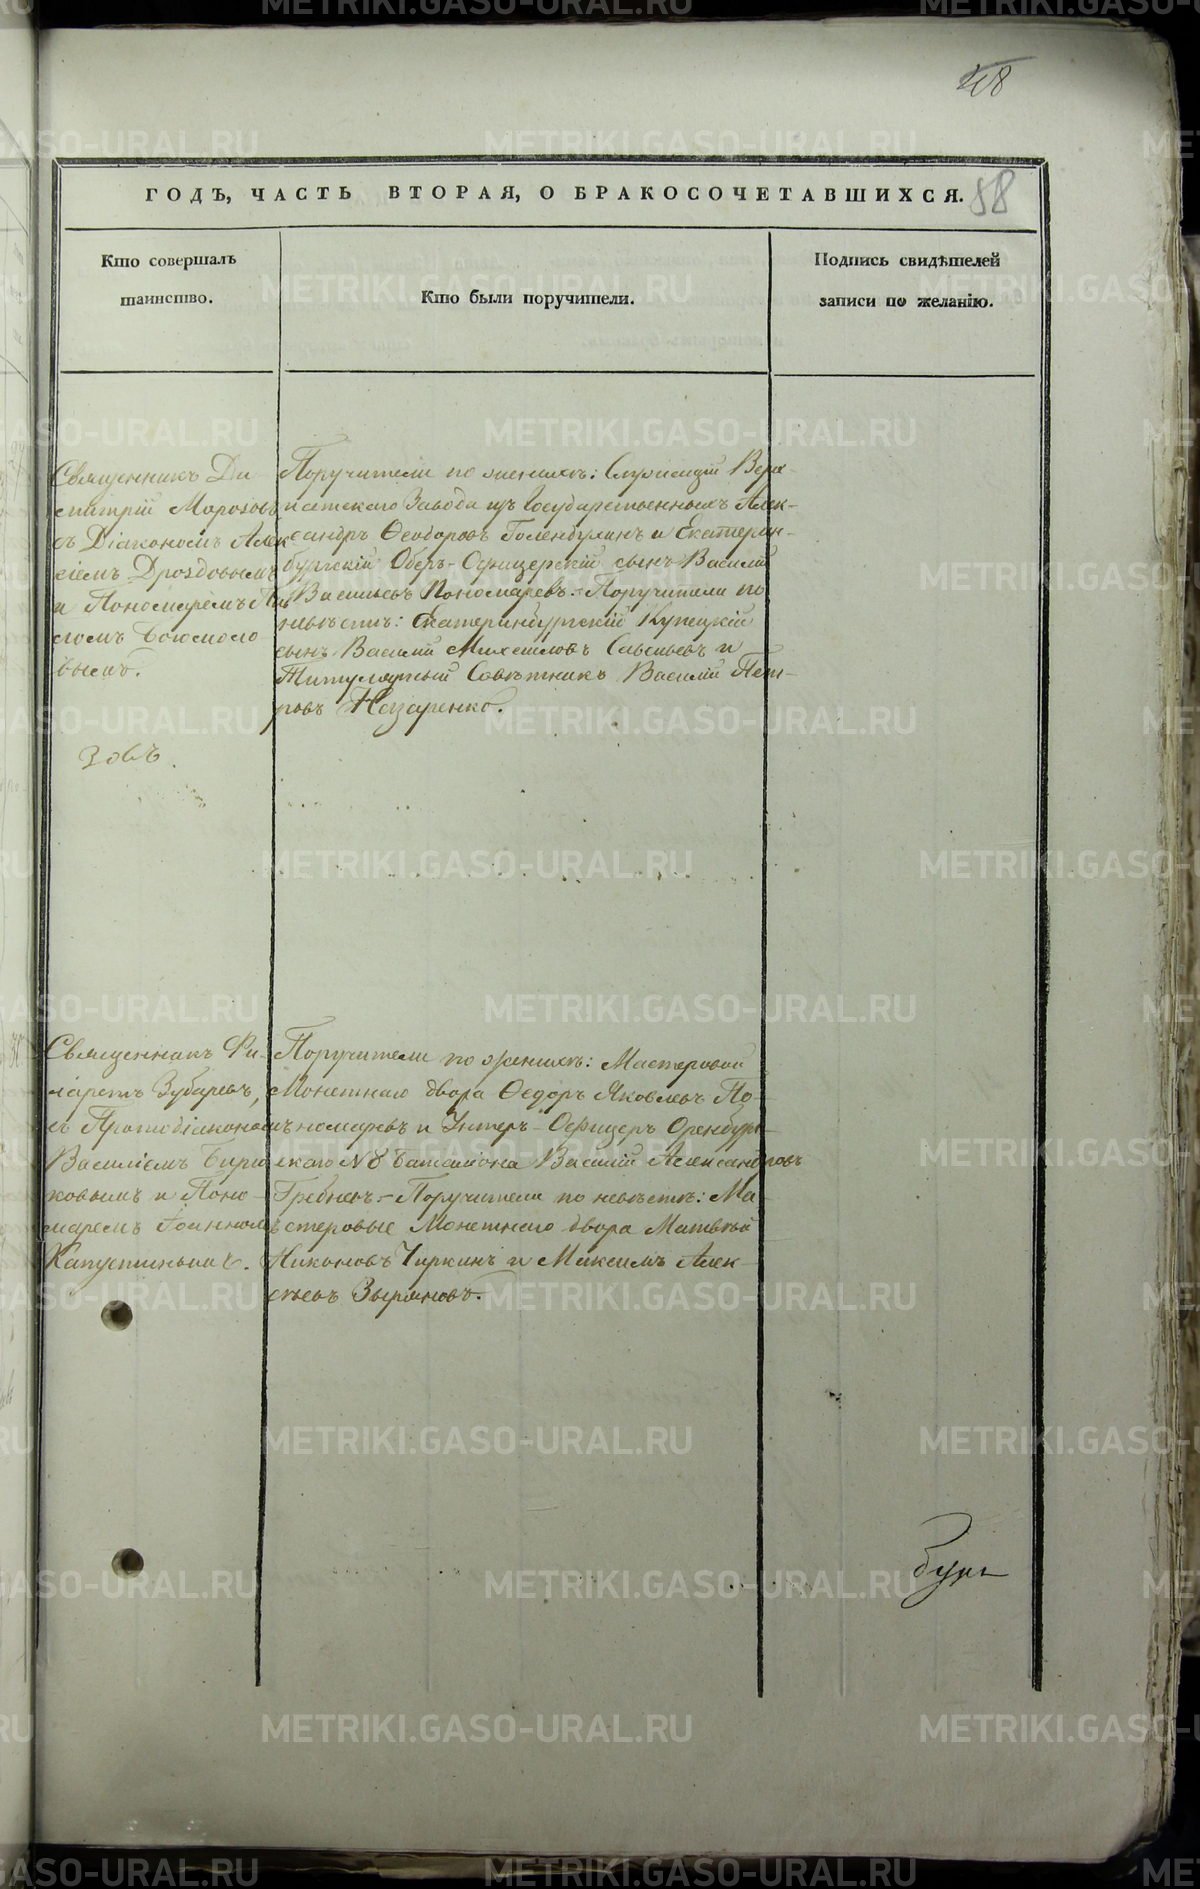 48
ГОДЪ, ЧАСТЬ ВТОРАЯ, О БРАКОСОЧЕТАВШИХСЯ.
88
Кто совершалъ
таинство.
Кто были поручители.
Подпись свидѣтелей
записи по желанію.
Священникъ Ди-
митрій Морозовъ
съ Діакономъ Алек
сіемъ Дроздовымъ
и Пономаремъ Пав
ломъ Богомоло
вымъ.
Поручители по женихѣ: Служащій Верх-
исетскаго Завода изъ Государственныхъ Алек-
сандръ Ѳеодоровъ Голендухинъ и Екатерин-
бургскій Оберъ-Офицерскій сынъ Василій
Васильевъ Пономаревъ. - Поручители по
невѣстѣ: Екатеринбургскій Купецкій
сынъ Василій Михайловъ Савельевъ и
Титулярный Совѣтникъ Василій Пет-
ровъ Назаренко.
Священникъ Фи-
ларетъ Зубаревъ,
съ Протодіакономъ
Василіемъ Бирю
ковымъ и Поно-
маремъ Іоанномъ
Капустинымъ.
Поручители по женихѣ: Мастеровой
Монетнаго двора Ѳедоръ Яковлевъ По-
номаревъ и Унтеръ-Офицеръ Оренбург-
скаго №8 баталіона Василій Александровъ
Гребневъ. - Поручители по невѣстѣ: Ма-
стеровые Монетнаго двора Матвѣй
Никоновъ Чиркинъ и Максимъ Алек-
сѣевъ Зыряновъ.
METRIKI.GASO-URAL.RU